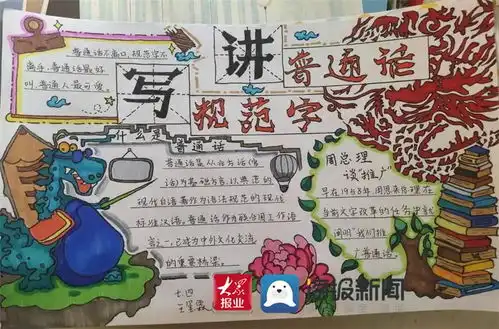 讲普通话
写规范字
普通话不离口,规范字不
离手,普通话最好
听,普通人最可爱
什么是
普通话
普通话是以北方话作
话为基础方言,以典范的
现代白话著作为语法规范的现代
标准汉语。普通话作为联合国工作语
言之一,已成为中外文化交流
的重要桥梁。
周总理
谈推广
早在1958年,周恩来总理在
当前文字改革的任务中就
阐明"我们推
广普通话
七四
大众
报业
海报新闻